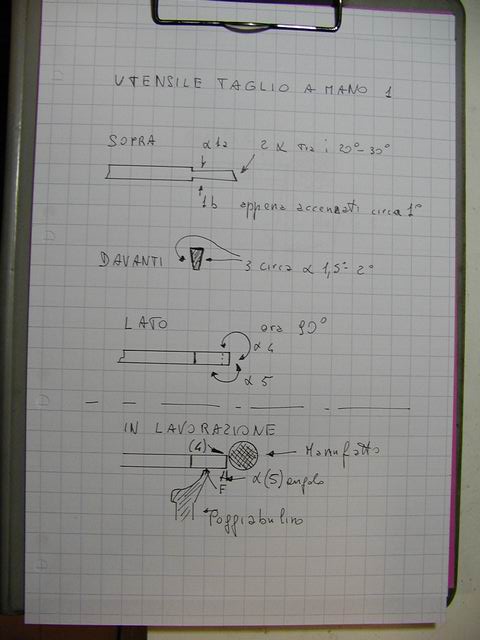 UTENSILE TAGLIO A MANO 1
SOPRA α 1a 2 α tra i 20°-30°
1b appena accennati circa 1°
DAVANTI 3 circa α 1,5°- 2°
LATO ora 90°
α 4
α 5
IN LAVORAZIONE
(4) Manufatto
α (5) angolo
F
Poggiabulino